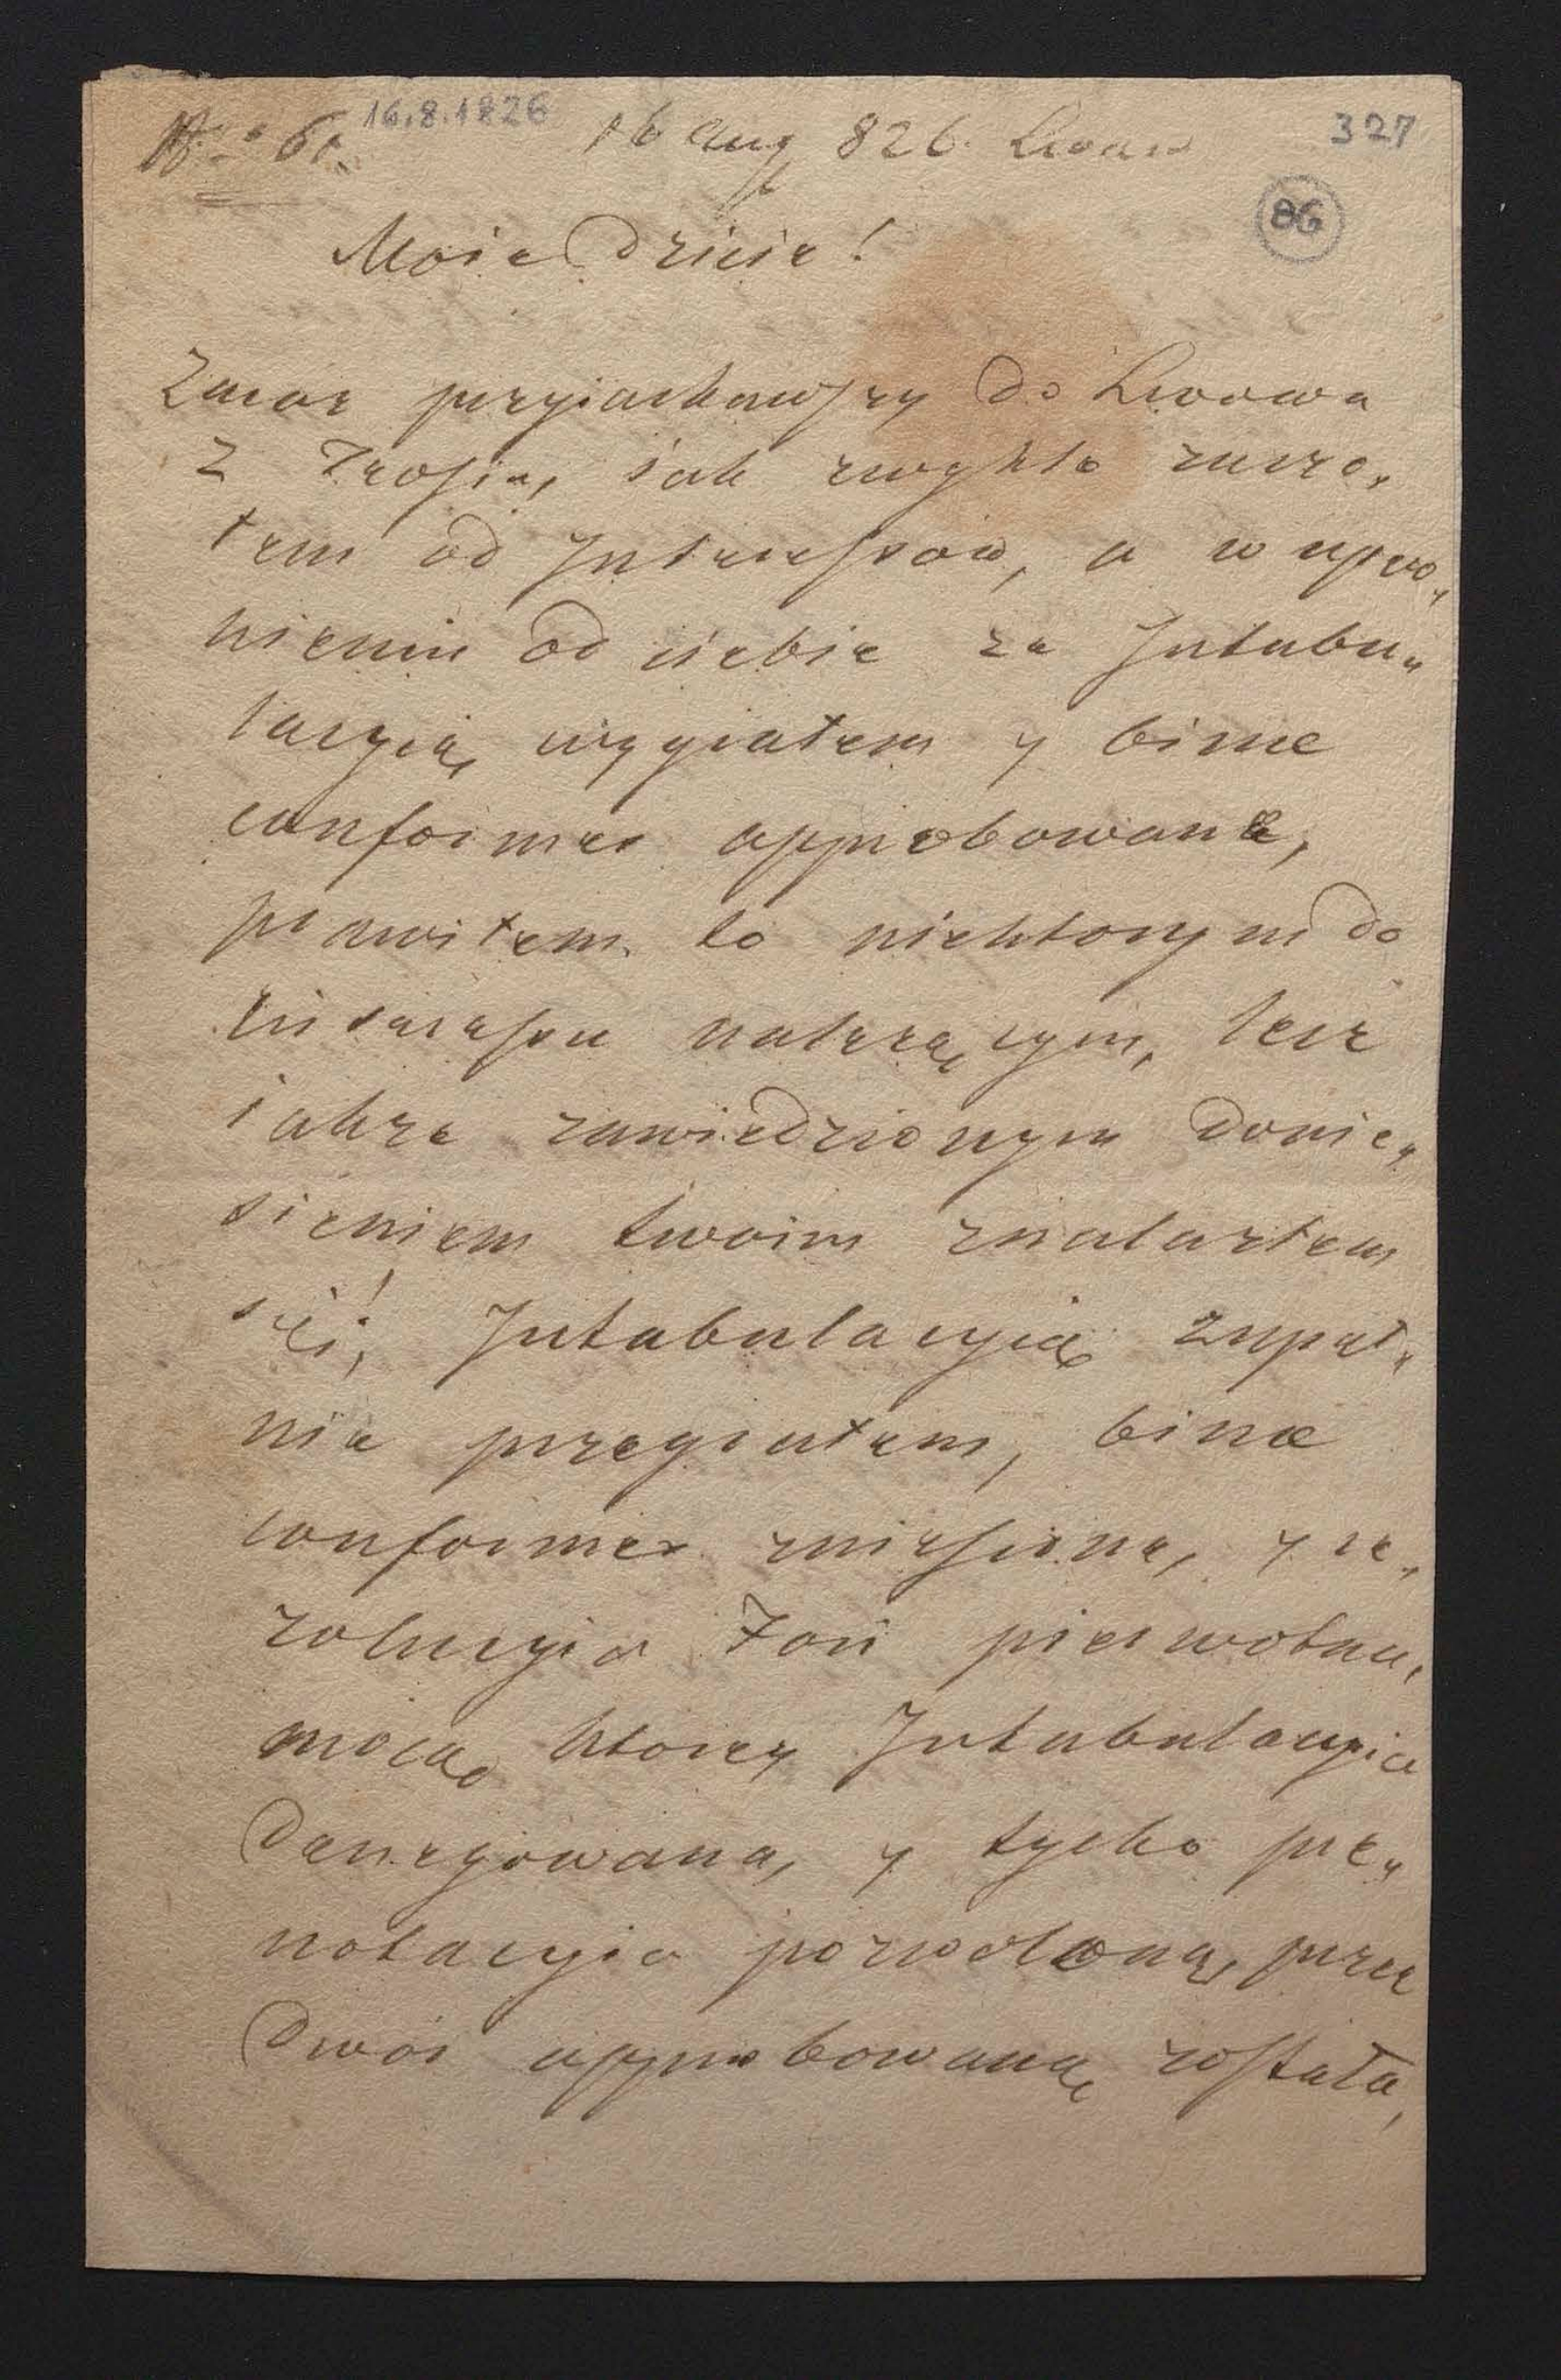 No 6. 16.8.1826 16 Aug 826. Lwow 327
86
Moie Dziecie!
Zaraz przyiachawszy do Lwowa
z Zrosia, iak zwykle zaczo„
łem od Interessow, a w upew„
nieniu od ciebie za Intabu„
lacyią wzyiałem y binæ
conformes approbowane,
prawiłem to niektorym do
Interessu należącym, lecz
iakże zawiedzionym donie„
sieniem twoim znalazłem
się! Intabulacyią zupeł„
nie przegiałem, binæ
conformes zniesione, y re„
zolucyia Fori pierwotna,
mocą ktorey Intabulacyia
denegowana, y tylko pre„
notacyia pozwoloną, przez
Dwor approbowaną została,